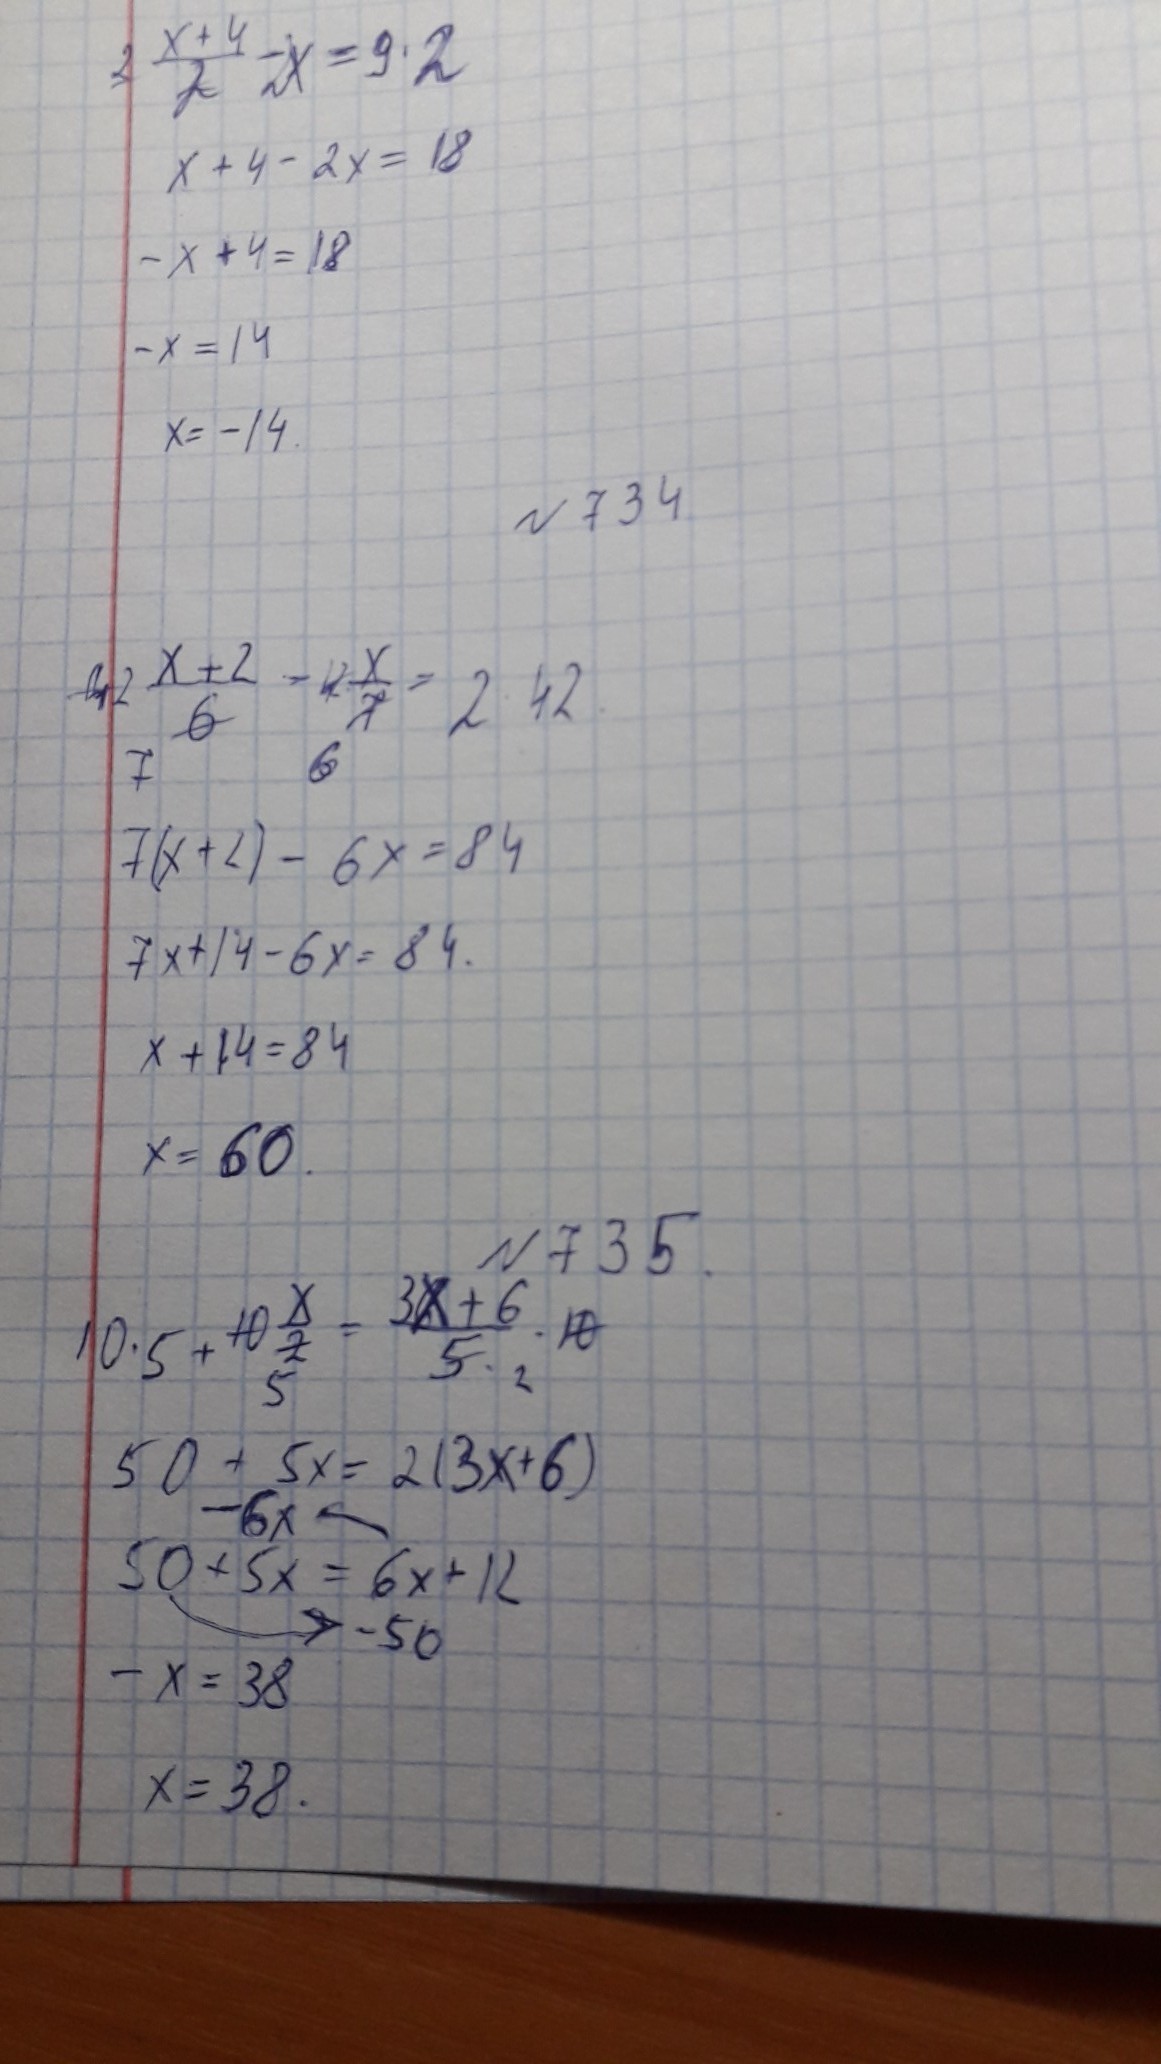 2 (x+4)/2 - 2x = 9·2
x + 4 - 2x = 18
-x + 4 = 18
-x = 14
x = -14.
№734
42 (x+2)/6 - 42 x/7 = 2·42.
7 6
7(x+2) - 6x = 84
7x+14-6x = 84.
x + 14 = 84
x = 60.
№735.
10·5 + 10 x/2 = (3x+6)/5 · 10
5 2
50 + 5x = 2(3x+6)
-6x
50 + 5x = 6x + 12
-50
-x = 38
x = 38.